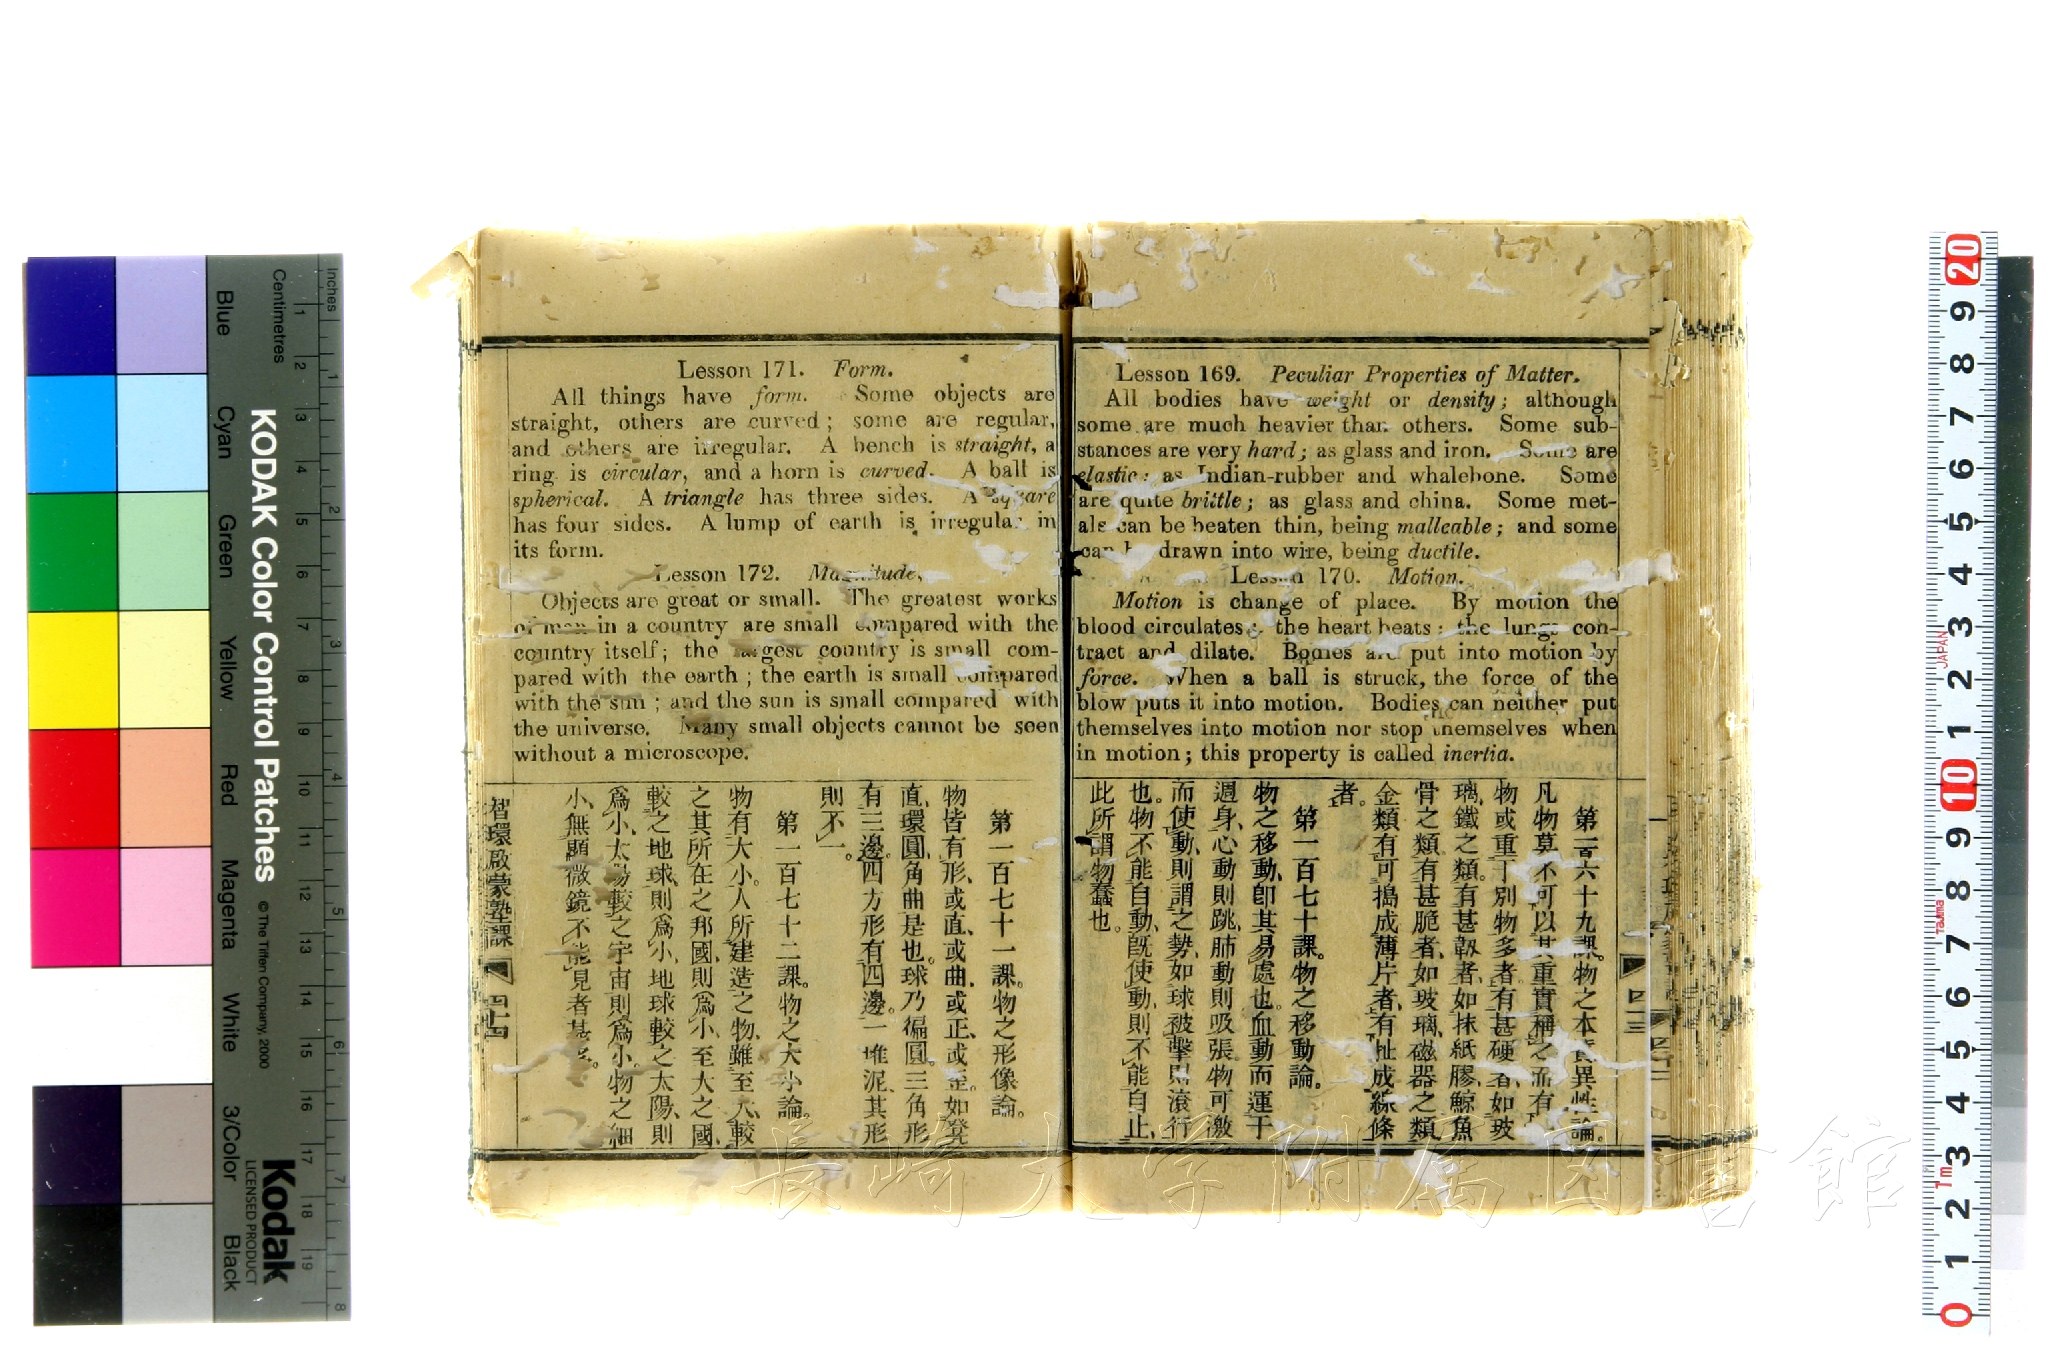 Lesson 169. Peculiar Properties of Matter.
All bodies have weight or density; although
some are much heavier than others. Some sub-
stances are very hard; as glass and iron. Some are
elastic; as Indian-rubber and whalebone. Some
are quite brittle; as glass and china. Some met-
als can be beaten thin, being malleable; and some
can be drawn into wire, being ductile.
Lesson 170. Motion.
Motion is change of place. By motion the
blood circulates; the heart beats; the lungs con-
tract and dilate. Bodies are put into motion by
force. When a ball is struck, the force of the
blow puts it into motion. Bodies can neither put
themselves into motion nor stop themselves when
in motion; this property is called inertia.
第一百六十九課。物之本質異性論。
凡物莫不可以其重實稱之、而有
物或重于別物多者、有甚硬者、如玻
璃、鐵之類。有甚韌者、如抹紙膠、鯨魚
骨之類、有甚脆者、如玻璃、磁器之類、
金類有可搗成薄片者、有扯成綫條
者。
第一百七十課。物之移動論。
物之移動、卽其易處也。血動而運于
週身、心動則跳、肺動則吸張、物可激
而使動、則謂之勢、如球被擊則滾行
也。物不能自動、旣使動則不能自止、
此所謂物蠢也。
四十三
Lesson 171. Form.
All things have form. Some objects are
straight, others are curved; some are regular,
and others are irregular. A bench is straight, a
ring is circular, and a horn is curved. A ball is
spherical. A triangle has three sides. A square
has four sides. A lump of earth is irregular in
its form.
Lesson 172. Magnitude.
Objects are great or small. The greatest works
of man in a country are small compared with the
country itself; the largest country is small com-
pared with the earth; the earth is small compared
with the sun; and the sun is small compared with
the universe. Many small objects cannot be seen
without a microscope.
第一百七十一課。物之形像論。
物皆有形、或直、或曲、或正、或歪。如凳
直、環圓、角曲是也。球乃徧圓。三角形
有三邊。四方形有四邊。一堆泥、其形
則不一。
第一百七十二課。物之大小論。
物有大小。人所建造之物、雖至大、較
之其所在之邦國、則爲小、至大之國、
較之地球、則爲小、地球較之太陽、則
爲小、太陽較之宇宙、則爲小。物之細
小、無顯微鏡不能見者甚多。
智環啟蒙塾課
四十四
KODAK Color Control Patches
© The Tiffen Company, 2000
Kodak
LICENSED PRODUCT
Inches
Centimetres
1 2 3 4 5 6 7 8 9 10 11 12 13 14 15 16 17 18 19
1 2 3 4 5 6 7 8
Blue
Cyan
Green
Yellow
Red
Magenta
White
3/Color
Black
20 9 8 7 6 5 4 3 2 1 10 9 8 7 6 5 4 3 2 1 0
JAPAN
Tajima
1m
長崎大学附属図書館